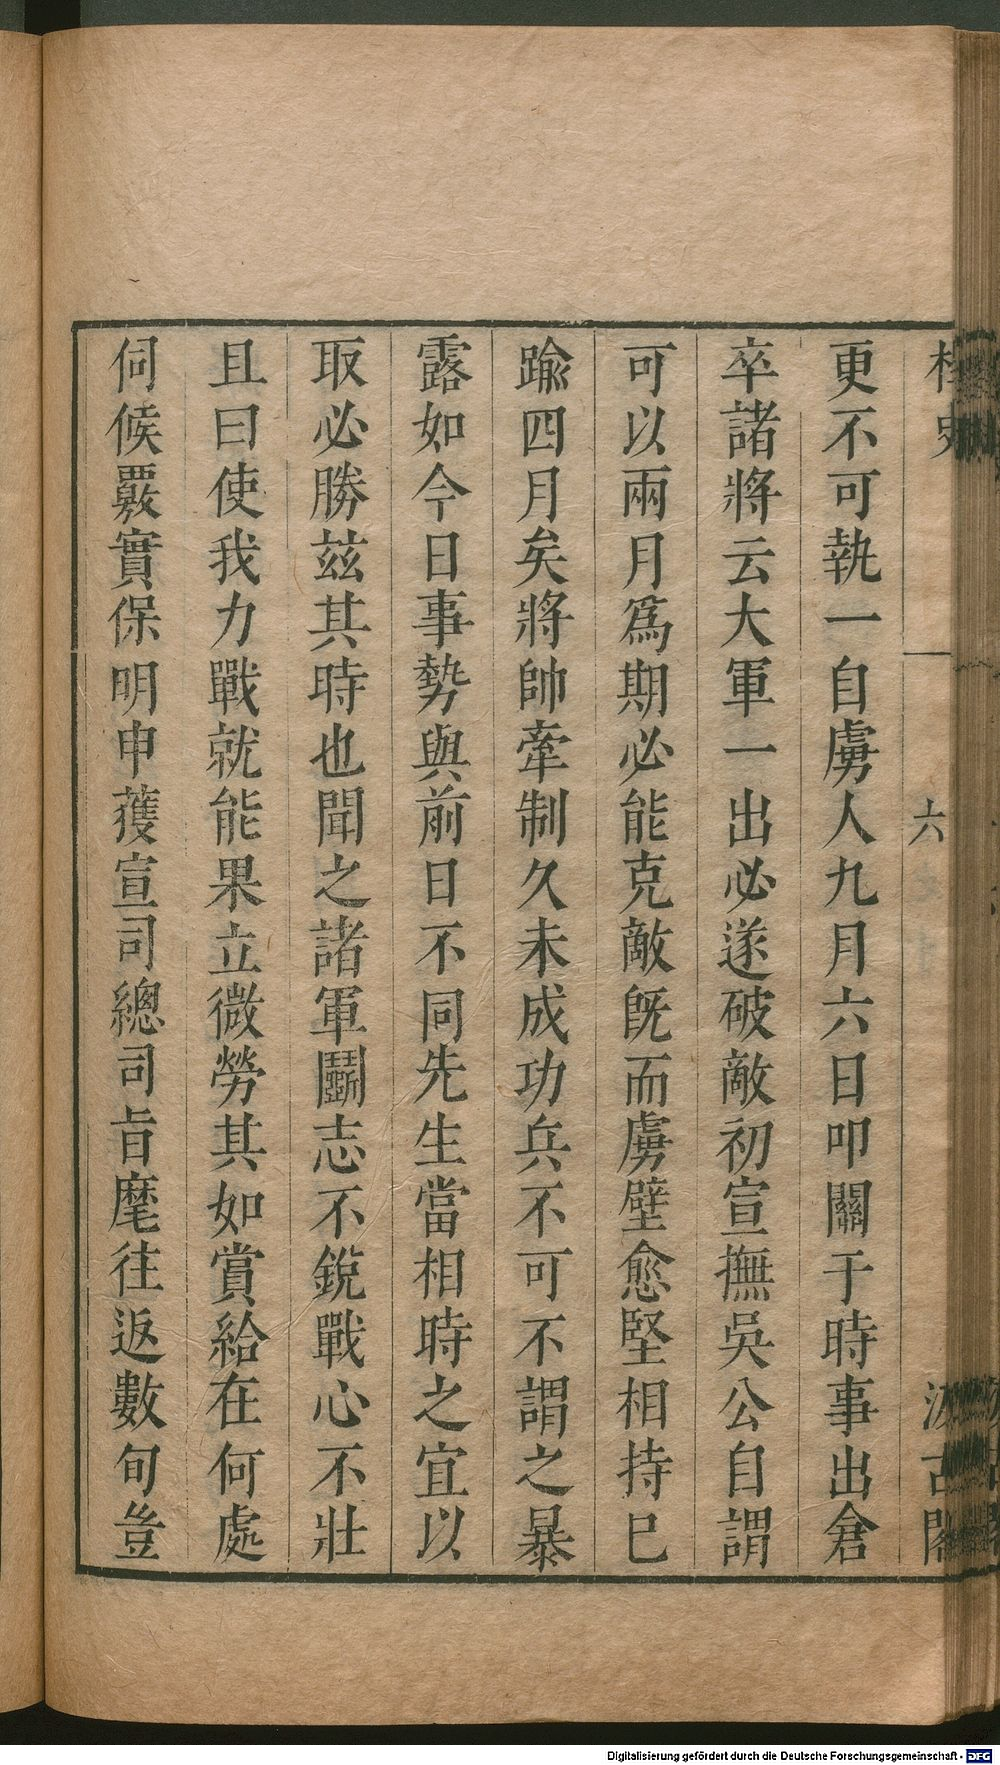 桯史
六
汲古閣
更不可執一自虜人九月六日叩關于時事出倉
卒諸將云大軍一出必遂破敵初宣撫吳公自謂
可以兩月爲期必能克敵旣而虜壁愈堅相持已
踰四月矣將帥牽制久未成功兵不可不謂之暴
露如今日事勢與前日不同先生當相時之宜以
取必勝兹其時也聞之諸軍鬭志不銳戰心不壯
且曰使我力戰就能果立微勞其如賞給在何處
伺候覈實保明申獲宣司總司旨麾往返數旬豈
Digitalisierung gefördert durch die Deutsche Forschungsgemeinschaft - DFG